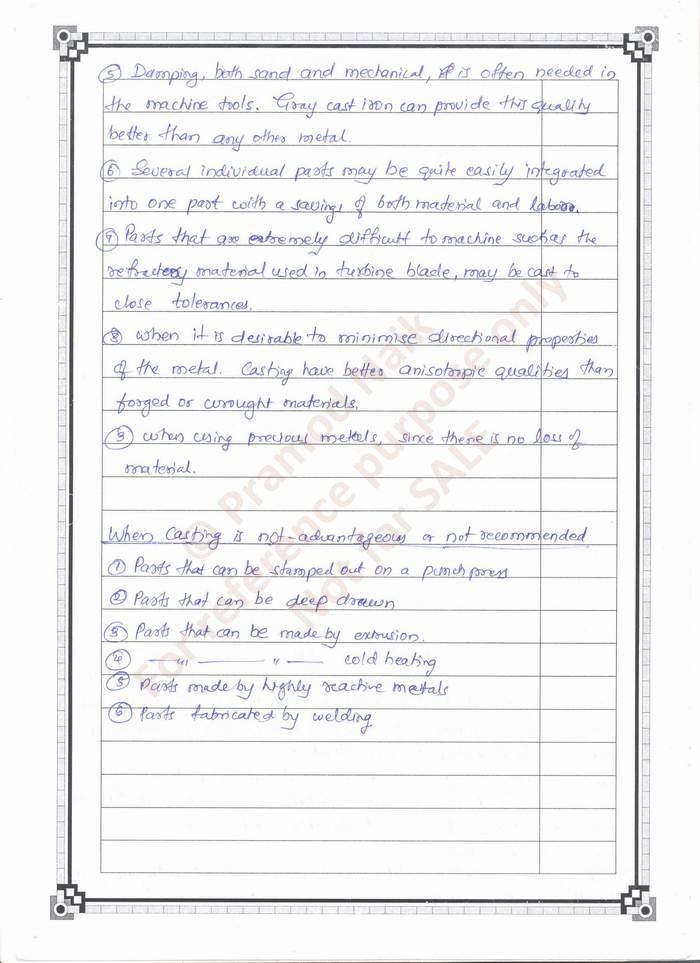 ⑤ Damping, both sand and mechanical, is often needed in
the machine tools. Gray cast iron can provide this quality
better than any other metal.
⑥ Several individual parts may be quite easily integrated
into one part with a savings of both material and labour.
⑦ Parts that are extremely difficult to machine such as the
refractory material used in turbine blade, may be cast to
close tolerances.
⑧ when it is desirable to minimise directional properties
of the metal. Casting have better anisotropic qualities than
forged or wrought materials.
⑨ when using precious metals, since there is no loss of
material.
When Casting is not-advantageous or not recommended
① Parts that can be stamped out on a punch press
② Parts that can be deep drawn
③ Parts that can be made by extrusion.
④ —〃— 〃 — cold heating
⑤ Parts made by highly reactive metals
⑥ Parts fabricated by welding
© Pramod Naik
For reference purpose only
Not for SALE